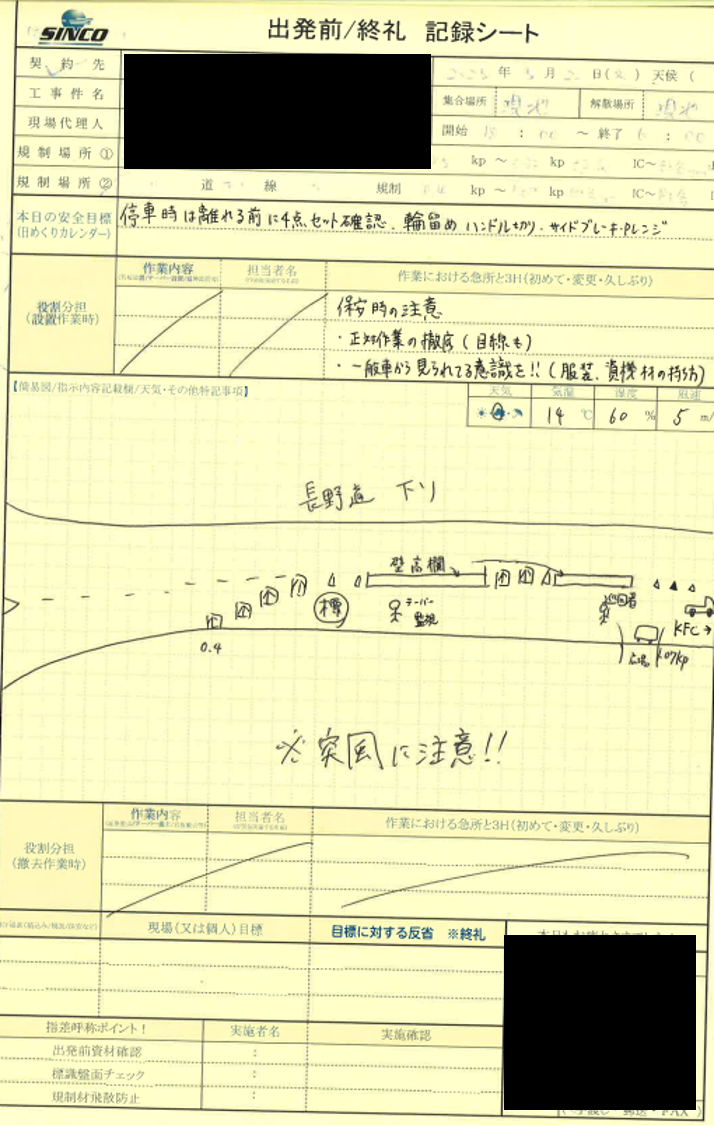 SINCO
出発前/終礼 記録シート
契約先
年 月 日( ) 天候(
工事件名
集合場所 現地 解散場所 現地
現場代理人
開始 : 00 ～ 終了 6 : 00
規制場所①
kp ～ kp IC～
規制場所②
道 線 規制 kp ～ kp IC～
本日の安全目標
(日めくりカレンダー)
停車時は離れる前に4点セット確認、輪留め ハンドル切り・サイドブレーキ・Pレンジ
役割分担
(設置作業時)
作業内容 担当者名 作業における急所と3H(初めて・変更・久しぶり)
保安時の注意
・正対作業の徹底(目線も)
・一般車から見られてる意識を!!(服装、資機材の持ち方)
【簡易図/指示内容記載欄/天気・その他特記事項】
天気 気温 湿度 風速
14 ℃ 60 % 5 m/
長野道 下り
壁高欄
標
テーパー
監視
巡回者
KFC→
0.4
広場
1.07kp
※突風に注意!!
役割分担
(撤去作業時)
作業内容 担当者名 作業における急所と3H(初めて・変更・久しぶり)
現場(又は個人)目標 目標に対する反省 ※終礼
指差呼称ポイント! 実施者名 実施確認
出発前資材確認 :
標識盤面チェック :
規制材飛散防止 :
郵送・FAX)